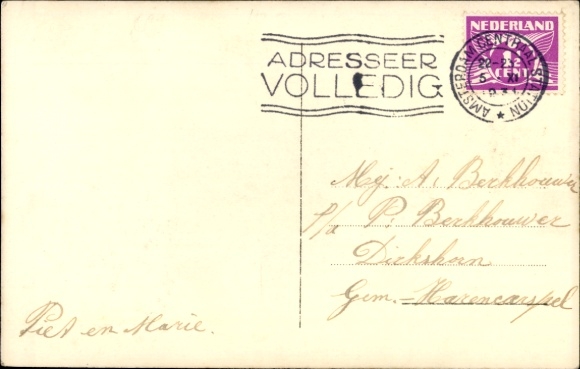 NEDERLAND
CENT
AMSTERDAM CENTRAAL STATION
5 XI
ADRESSEER
VOLLEDIG
Mej: A. Berkhouwer
P/a P: Berkhouwer
Dirkshorn
Gem. = Harencarspel
Piet en Marie.